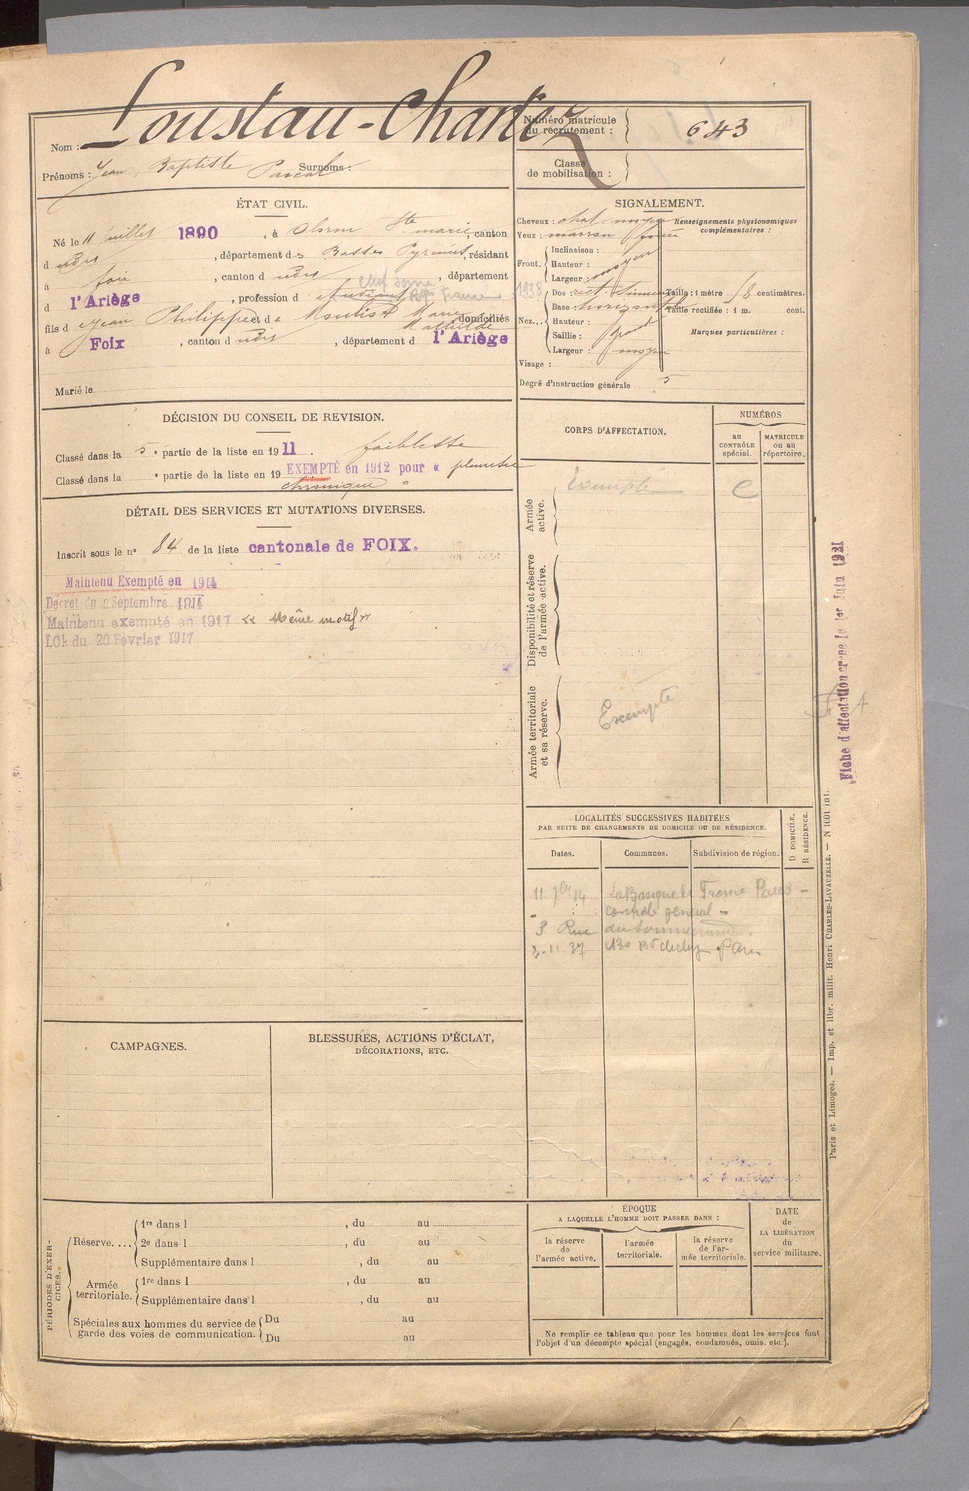 Nom : Loustau-Chartez
Prénoms : Jean Baptiste Pascal Surnoms :
Numéro matricule du recrutement : 643
Classe de mobilisation :
ÉTAT CIVIL.
Né le 11 Juillet 1890, à Oloron Ste marie, canton
d udit, département des Basses Pyrénées, résidant
à foix, canton d udit, département
d l'Ariège, profession d' étudiant
fils d Jean Philippe et d Marie Mathilde domiciliés
à Foix, canton d udit, département d l'Ariège
Marié le
SIGNALEMENT.
Cheveux : chat. moyen
Yeux : marron
Renseignements physionomiques complémentaires :
Front. Inclinaison :
Hauteur :
Largeur : moyen
1938
Nez... Dos : rect. sinueux
Base : horizontale
Hauteur :
Saillie : grand
Largeur : moyen
Taille : 1 mètre centimètres.
Taille rectifiée : 1 m. cent.
Marques particulières :
Visage :
Degré d'instruction générale 5
DÉCISION DU CONSEIL DE REVISION.
Classé dans la 5e partie de la liste en 1911. faiblesse
Classé dans la e partie de la liste en 19 EXEMPTÉ en 1912 pour « pleurésie
chronique "
DÉTAIL DES SERVICES ET MUTATIONS DIVERSES.
Inscrit sous le no 84 de la liste cantonale de FOIX.
Maintenu Exempté en 1914
Decret du 9 Septembre 1914
Maintenu exempté en 1917 « Même motif »
LOI du 20 Fevrier 1917
CORPS D'AFFECTATION.
NUMÉROS
AU CONTRÔLE spécial.
MATRICULE OU AU répertoire.
Armée active.
Exempté
C
Disponibilité et réserve de l'armée active.
Armée territoriale et sa réserve.
Exempté
Fiche d'affectation créée le 1er Juin 1921
LOCALITÉS SUCCESSIVES HABITÉES
PAR SUITE DE CHANGEMENTS DE DOMICILE OU DE RÉSIDENCE.
Dates. Communes. Subdivision de région. D DOMICILE. R RÉSIDENCE.
11 7bre 14 La Banque de France Paris -
contrôle général -
3 Rue du Sommerard
2-11-37 130 Bd de Clichy Paris
CAMPAGNES.
BLESSURES, ACTIONS D'ÉCLAT,
DÉCORATIONS, ETC.
PÉRIODES D'EXERCICES.
Réserve.... 1re dans l , du au
2e dans l , du au
Supplémentaire dans l , du au
Armée territoriale. 1re dans l , du au
Supplémentaire dans l , du au
Spéciales aux hommes du service de garde des voies de communication. Du au
Du au
ÉPOQUE
A LAQUELLE L'HOMME DOIT PASSER DANS :
la réserve de l'armée active.
l'armée territoriale.
la réserve de l'armée territoriale.
DATE de LA LIBÉRATION du service militaire.
Ne remplir ce tableau que pour les hommes dont les services font
l'objet d'un décompte spécial (engagés, condamnés, omis, etc.).
Paris et Limoges. — Imp. et libr. milit. Henri CHARLES-LAVAUZELLE. — N 1601 int.